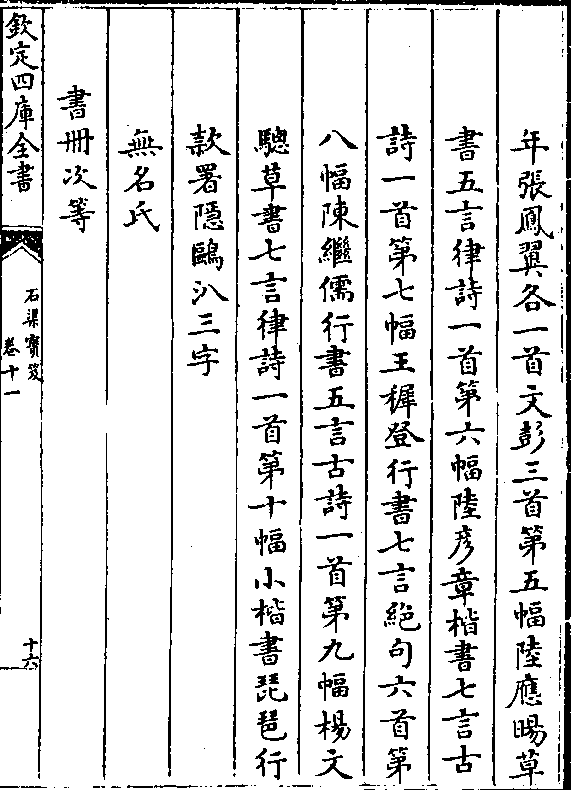 年張鳳翼各一首文彭三首第五幅陸應暘草
書五言律詩一首第六幅陸彦章楷書七言古
詩一首第七幅王穉登行書七言絶句六首第
八幅陳繼儒行書五言古詩一首第九幅楊文
驄草書七言律詩一首第十幅小楷書琵琶行
款署隱鷗汃三字
無名氏
書冊次等
欽定四庫全書
石渠寶笈
卷十一
十六